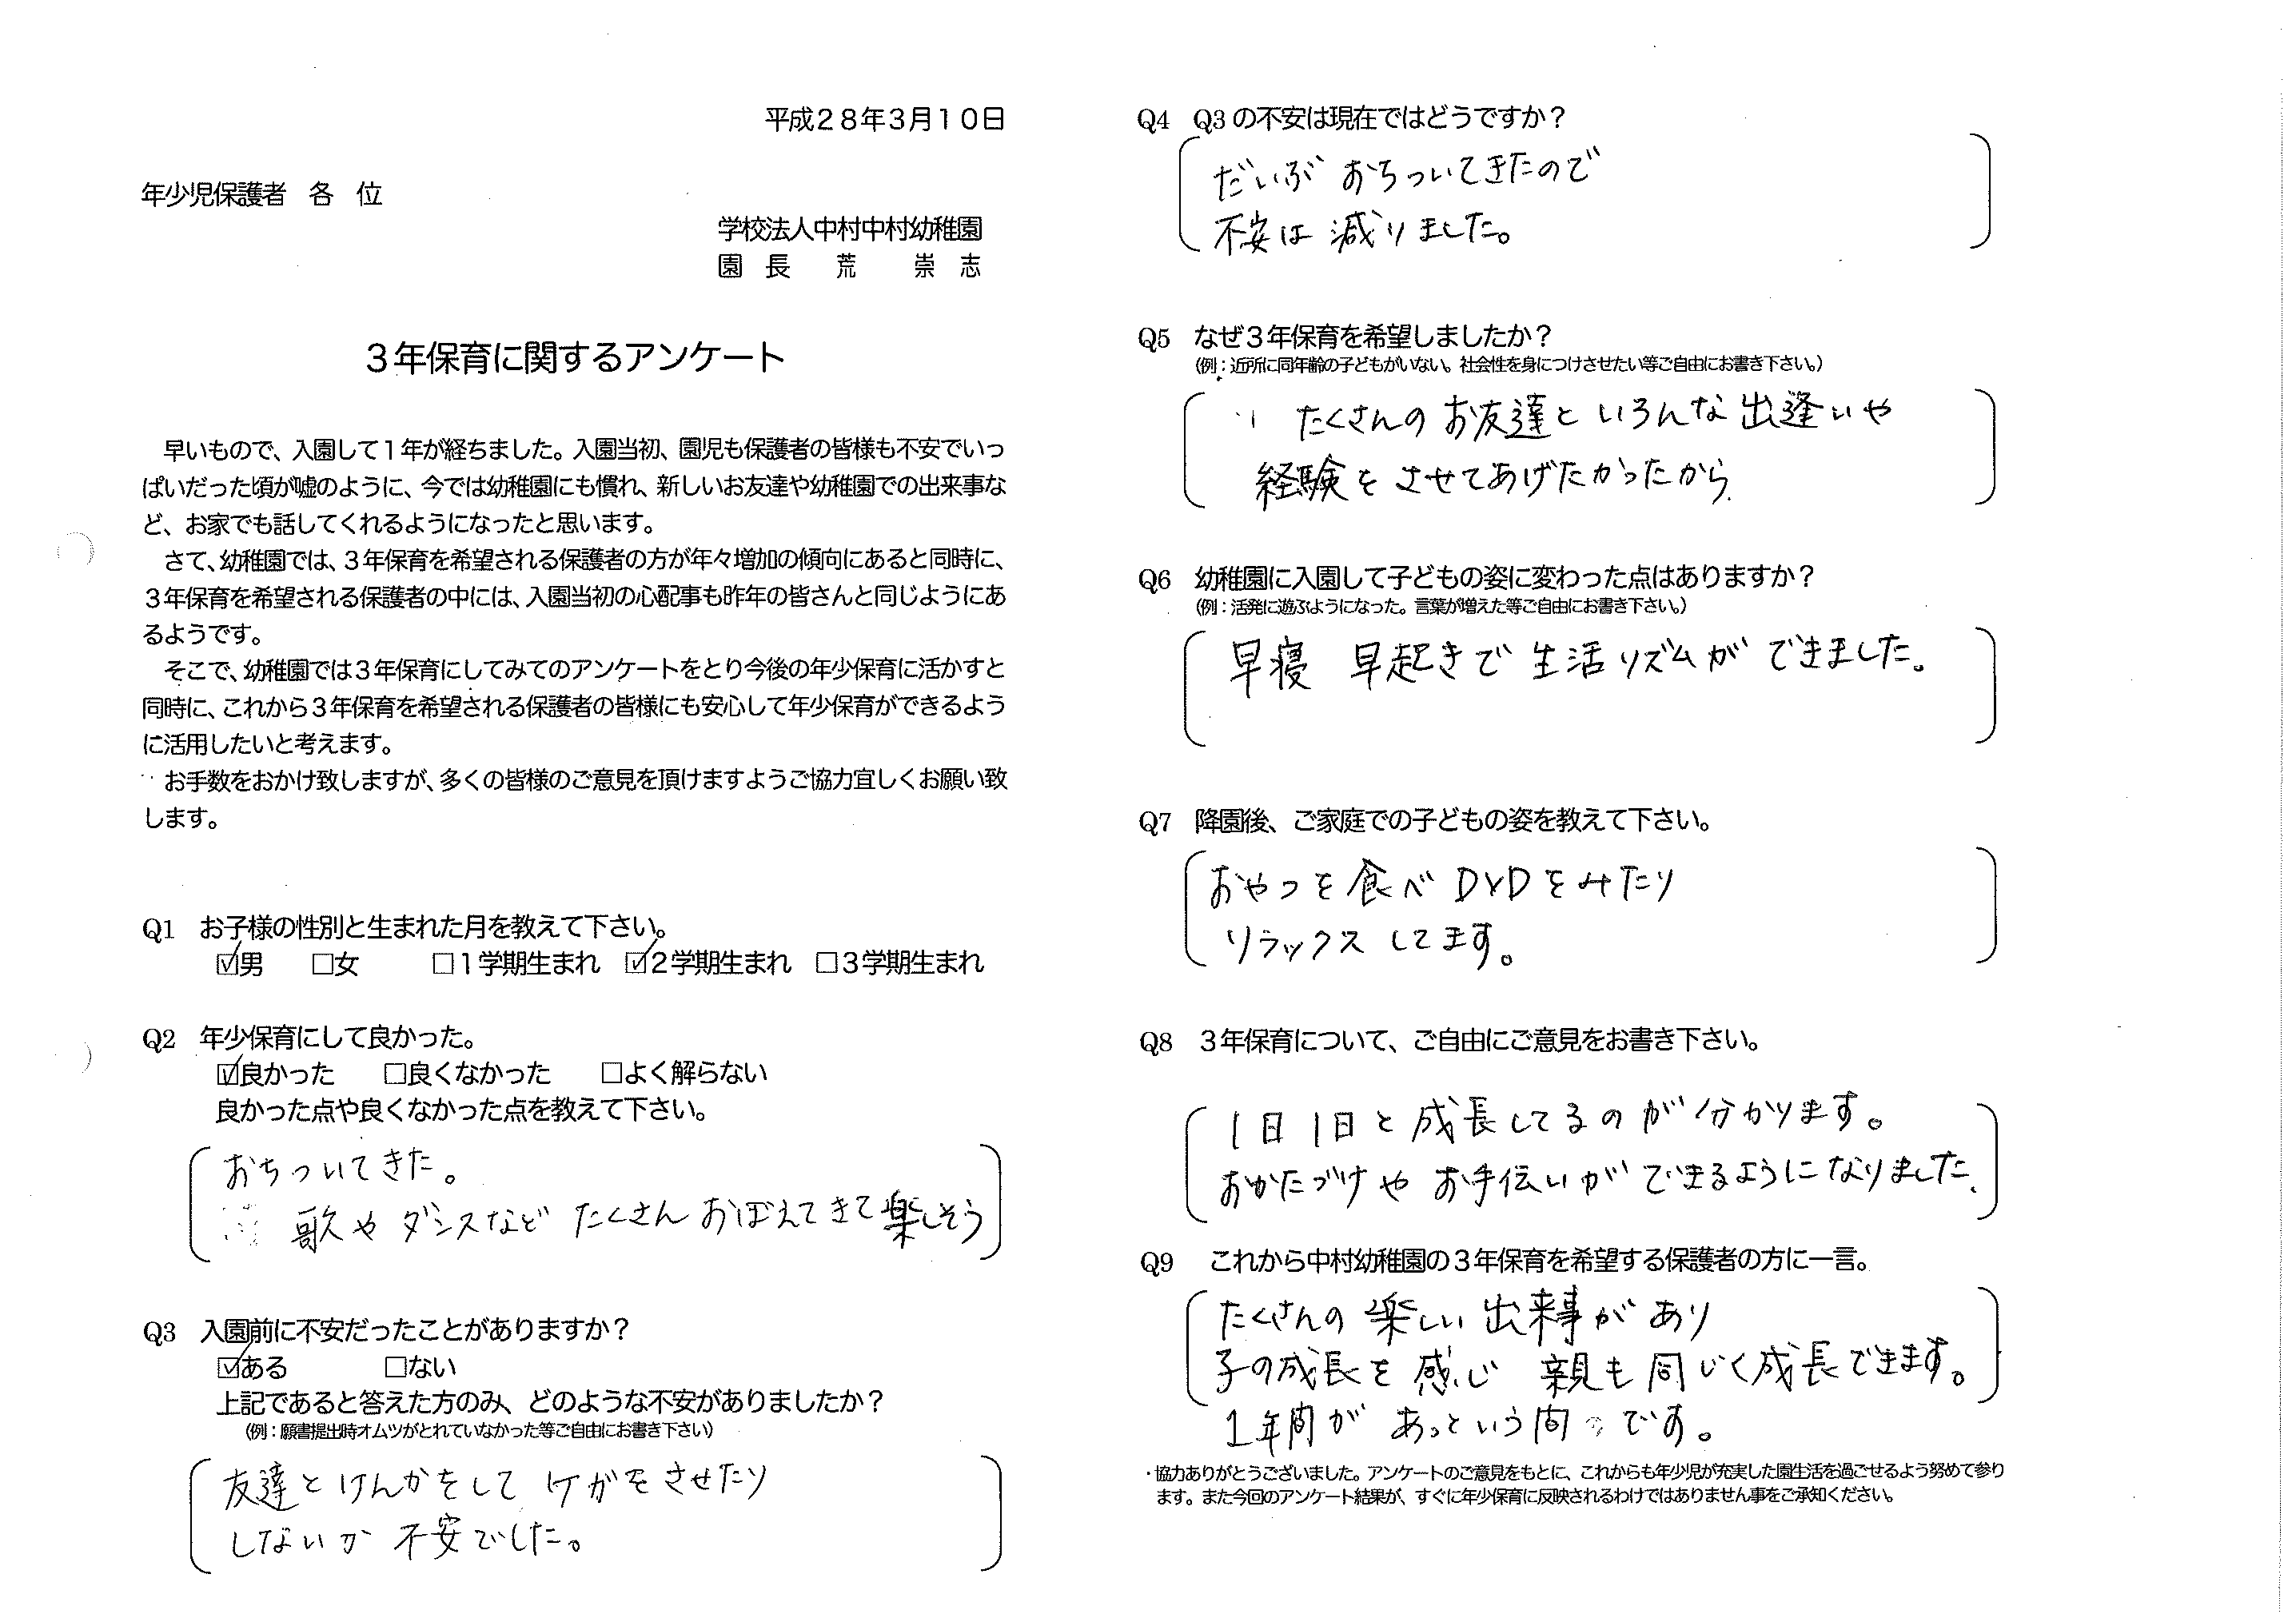 平成２８年３月１０日
年少児保護者　各　位
学校法人中村中村幼稚園
園　長　　荒　　崇　志
３年保育に関するアンケート
早いもので、入園して１年が経ちました。入園当初、園児も保護者の皆様も不安でいっ
ぱいだった頃が嘘のように、今では幼稚園にも慣れ、新しいお友達や幼稚園での出来事な
ど、お家でも話してくれるようになったと思います。
さて、幼稚園では、３年保育を希望される保護者の方が年々増加の傾向にあると同時に、
３年保育を希望される保護者の中には、入園当初の心配事も昨年の皆さんと同じようにあ
るようです。
そこで、幼稚園では３年保育にしてみてのアンケートをとり今後の年少保育に活かすと
同時に、これから３年保育を希望される保護者の皆様にも安心して年少保育ができるよう
に活用したいと考えます。
お手数をおかけ致しますが、多くの皆様のご意見を頂けますようご協力宜しくお願い致
します。
Q1　お子様の性別と生まれた月を教えて下さい。
☑男　□女　□１学期生まれ　☑２学期生まれ　□３学期生まれ
Q2　年少保育にして良かった。
☑良かった　□良くなかった　□よく解らない
良かった点や良くなかった点を教えて下さい。
おちついてきた。
歌や ダンスなど たくさん おぼえてきて楽しそう
Q3　入園前に不安だったことがありますか？
☑ある　□ない
上記であると答えた方のみ、どのような不安がありましたか？
（例：願書提出時オムツがとれていなかった等ご自由にお書き下さい）
友達と けんかをして ケガをさせたり
しないか 不安でした。
Q4　Q3の不安は現在ではどうですか？
だいぶ おちついてきたので
不安は 減りました。
Q5　なぜ３年保育を希望しましたか？
（例：近所に同年齢の子どもがいない。社会性を身につけさせたい等ご自由にお書き下さい。）
たくさんの お友達と いろんな 出逢いや
経験を させてあげたかったから.
Q6　幼稚園に入園して子どもの姿に変わった点はありますか？
（例：活発に遊ぶようになった。言葉が増えた等ご自由にお書き下さい。）
早寝 早起きで 生活リズムが できました。
Q7　降園後、ご家庭での子どもの姿を教えて下さい。
おやつを食べ DVDをみたり
リラックス してます。
Q8　３年保育について、ご自由にご意見をお書き下さい。
1日1日と 成長してるのが 分かります。
おかたづけや お手伝いが できるようになりました、
Q9　これから中村幼稚園の３年保育を希望する保護者の方に一言。
たくさんの 楽しい 出来事が あり
子の成長を 感じ 親も 同じく成長できます。
1年間が あっという間 です。
・協力ありがとうございました。アンケートのご意見をもとに、これからも年少児が充実した園生活を過ごせるよう努めて参り
ます。また今回のアンケート結果が、すぐに年少保育に反映されるわけではありません事をご承知ください。